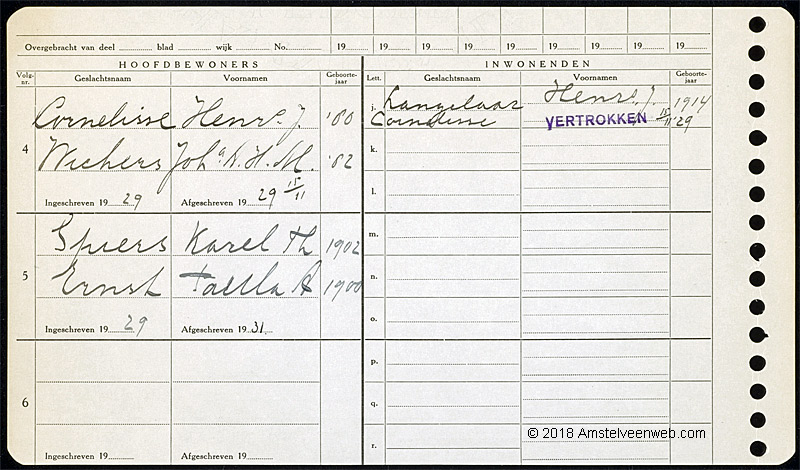 Overgebracht van deel blad wijk No. 19 19 19 19 19 19 19 19 19
HOOFDBEWONERS INWONENDEN
Volg-nr. Geslachtsnaam Voornamen Geboorte-jaar Lett. Geslachtsnaam Voornamen Geboorte-jaar
j. Langelaar Henrs. J. 1914
Cornelisse Henrs. J. '80 Cornelisse VERTROKKEN 15/11 '29
4 k.
Wichers Joha. D. H. M. '82
l.
Ingeschreven 19 29 Afgeschreven 19 29 15/11
Spiers Karel Th 1902 m.
5 n.
Ernst A 1900
o.
Ingeschreven 19 29 Afgeschreven 19 31.
p.
6 q.
r.
Ingeschreven 19 Afgeschreven 19
© 2018 Amstelveenweb.com